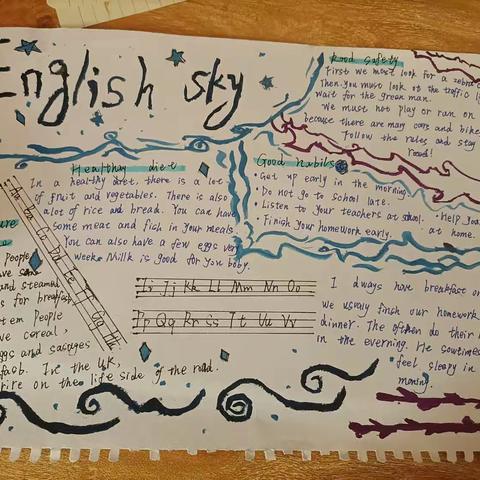 English sky
Road safety
First we must look for a zebra
Then you must look at the traffic
wait for the green man.
We must not play or run on
because there are many cars and bike
Follow the rules and stay
road!
Healthy diet
In a healthy diet, there is a lot
of fruit and vegetables. There is also
alot of rice and bread. You can have
some meat and fish in your meals
You can also have a few eggs very
week. Milk is good for you body.
Good habits
Get up early in the morning.
Do not go to school late.
Listen to your teachers at school.
Finish your homework early.
Help you
at home.
Aa Bb Cc Dd Ee Ff Gg Hh
Ii Jj Kk Ll Mm Nn Oo
Pp Qq Rr Ss Tt Uu Vv
ure
People
ve
and steamed
s for breakfast
tem People
ve cereal,
ggs and sacages
In the UK,
on the life side of the road.
I always have breakfast
we usually finsh our homework
dinner. The often do their
in the everning. He somtimes
feel sleepy in
morning